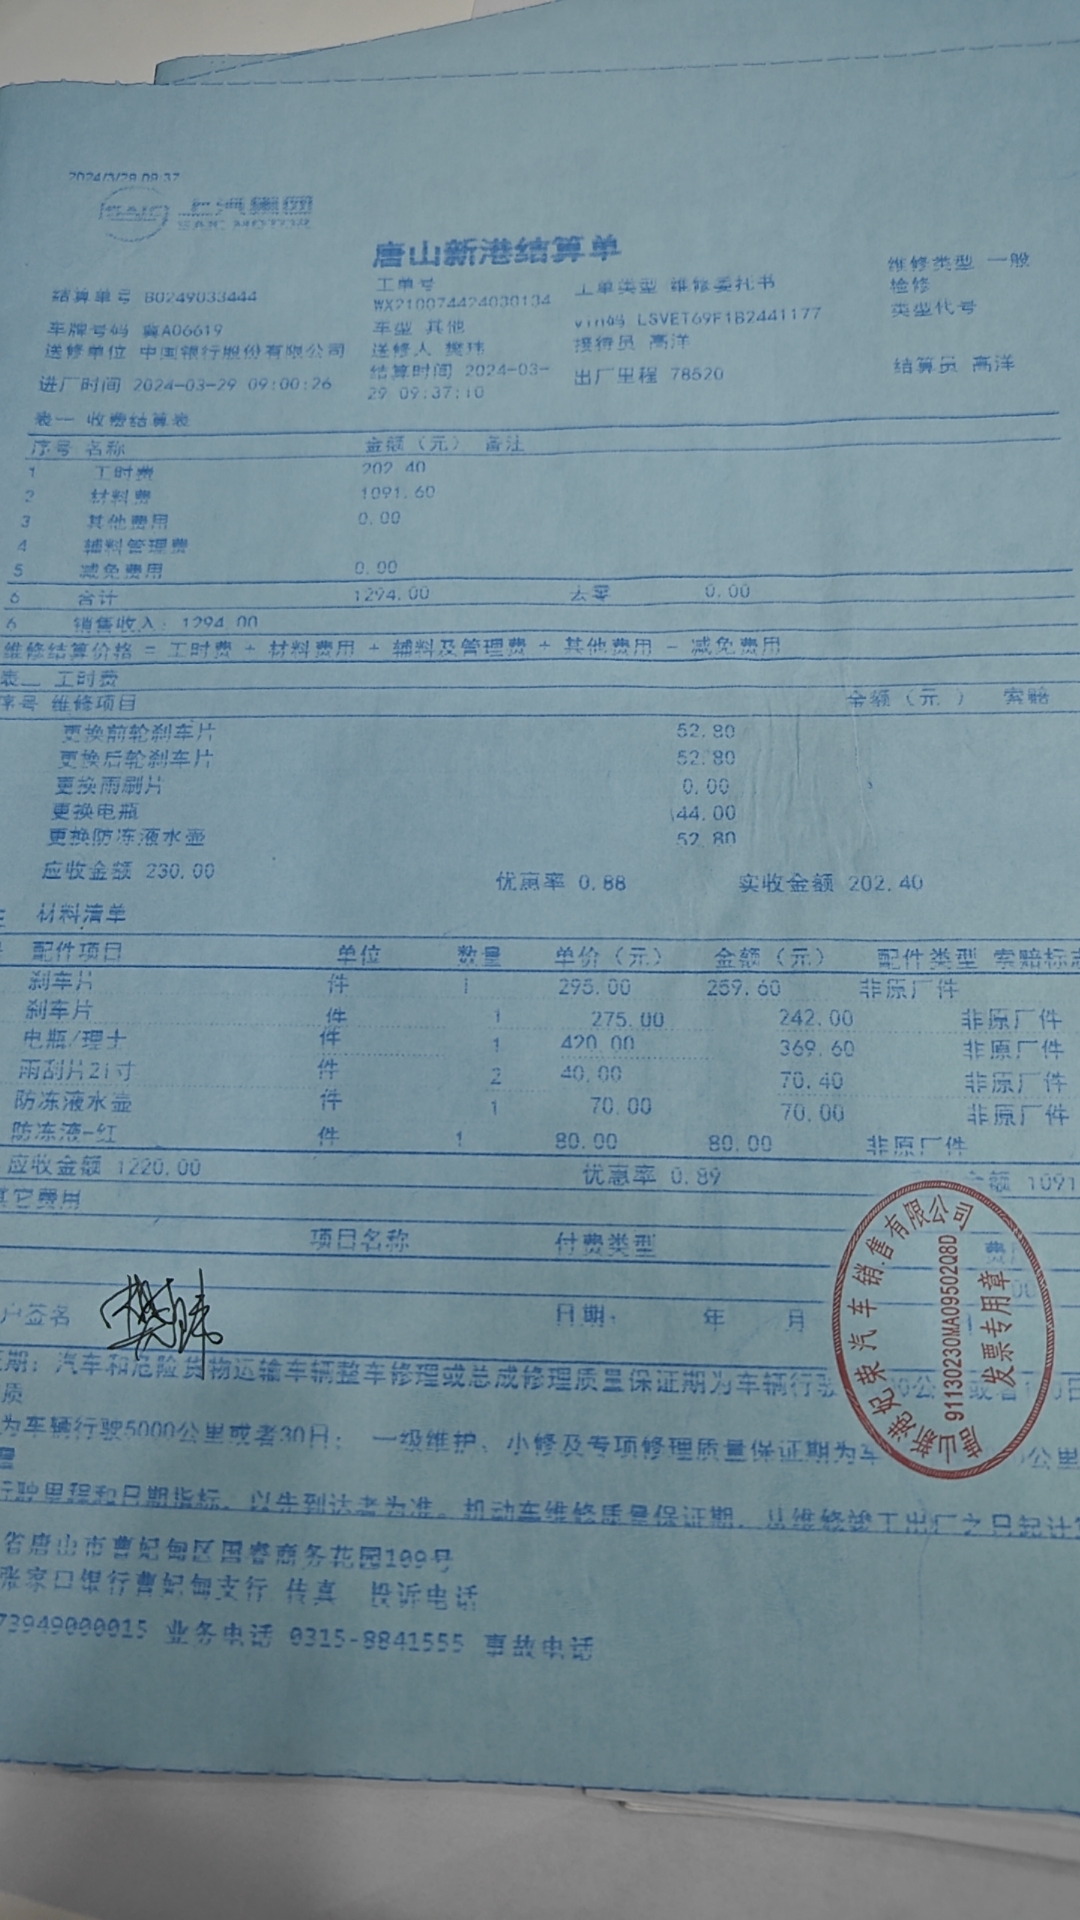 2024/3/29 09:37
SAIC 上汽集团
SAIC MOTOR
唐山新港结算单
结算单号 B0249033444 工单号 WX210074424030134 工单类型 维修委托书 维修类型 一般检修
车牌号码 冀A06619 车型 其他 vin码 LSVET69F1B2441177 类型代号
送修单位 中国银行股份有限公司 送修人 樊玮 接待员 高洋
进厂时间 2024-03-29 09:00:26 结算时间 2024-03-29 09:37:10 出厂里程 78520 结算员 高洋
表一 收费结算表
序号 名称 金额（元） 备注
1 工时费 202.40
2 材料费 1091.60
3 其他费用 0.00
4 辅料管理费
5 减免费用 0.00
6 合计 1294.00 去零 0.00
6 销售收入: 1294.00
维修结算价格 = 工时费 + 材料费用 + 辅料及管理费 + 其他费用 - 减免费用
表二 工时费
序号 维修项目 金额（元） 索赔
更换前轮刹车片 52.80
更换后轮刹车片 52.80
更换雨刷片 0.00
更换电瓶 44.00
更换防冻液水壶 52.80
应收金额 230.00 优惠率 0.88 实收金额 202.40
材料清单
配件项目 单位 数量 单价（元） 金额（元） 配件类型 索赔标志
刹车片 件 1 295.00 259.60 非原厂件
刹车片 件 1 275.00 242.00 非原厂件
电瓶/理士 件 1 420.00 369.60 非原厂件
雨刮片21寸 件 2 40.00 70.40 非原厂件
防冻液水壶 件 1 70.00 70.00 非原厂件
防冻液-红 件 1 80.00 80.00 非原厂件
应收金额 1220.00 优惠率 0.89 金额 1091
其它费用
项目名称 付费类型 费
户签名 樊玮 日期: 年 月
唐山新港妃荣汽车销售有限公司
91130230MA09502Q8D
发票专用章
期: 汽车和危险货物运输车辆整车修理或总成修理质量保证期为车辆行驶
质
为车辆行驶5000公里或者30日; 一级维护、小修及专项修理质量保证期为车 公里
量
行驶里程和日期指标，以先到达者为准。机动车维修质量保证期，从维修竣工出厂之日起计算
省唐山市曹妃甸区国睿商务花园109号
张家口银行曹妃甸支行 传真 投诉电话
73949000015 业务电话 0315-8841555 事故电话